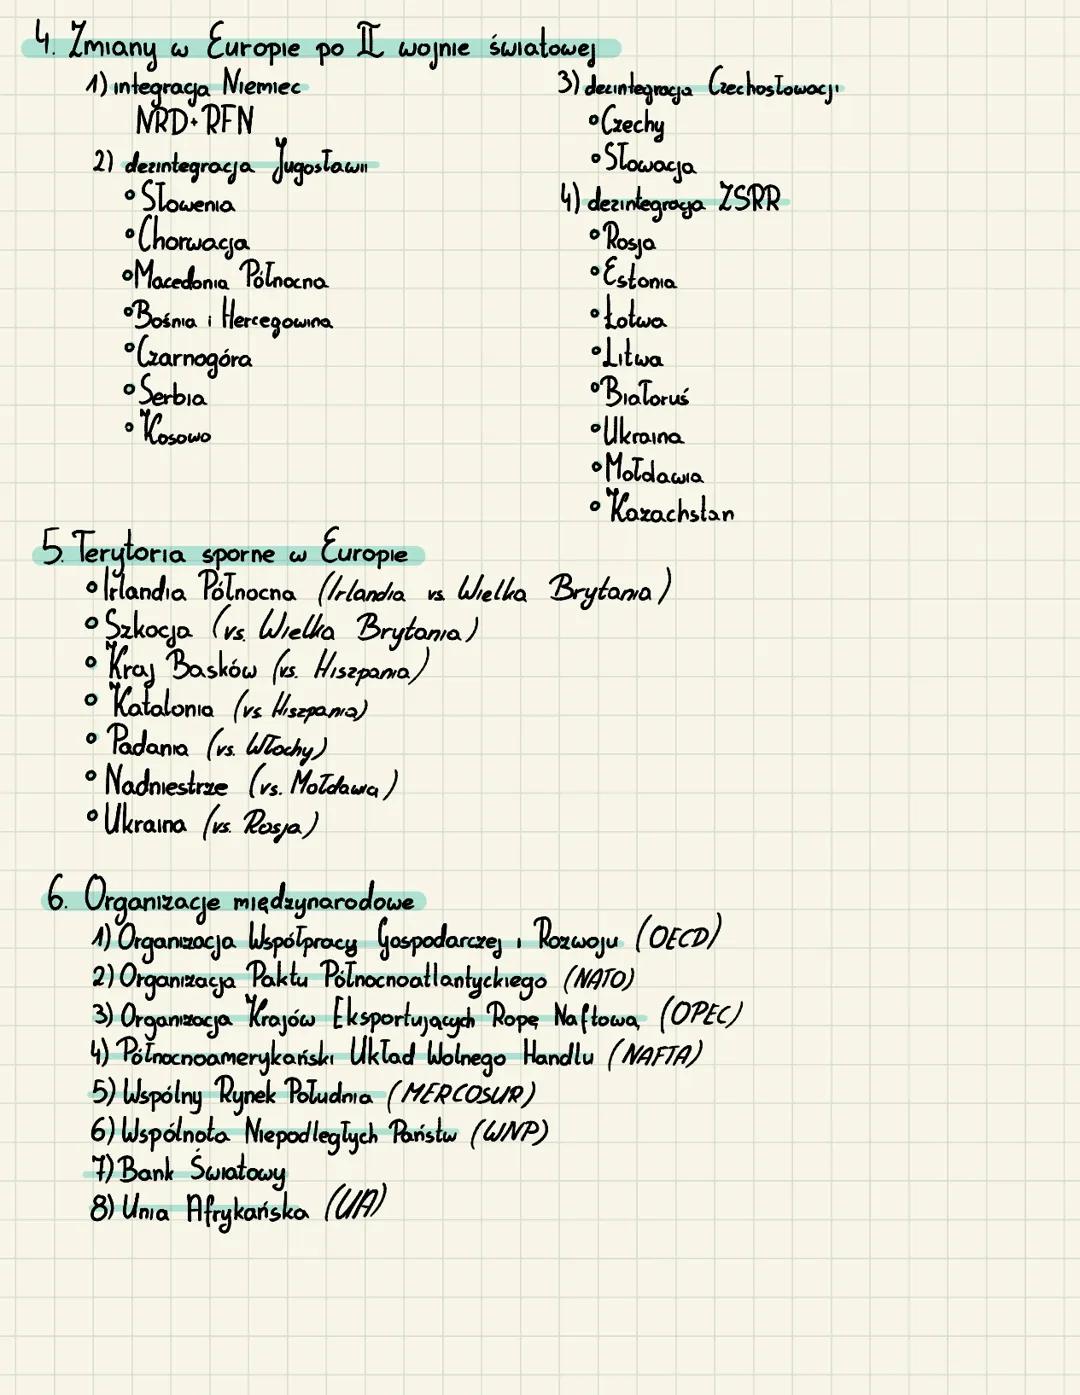 4. Zmiany w Europie po II wojnie światowej
1) integracja Niemiec
NRD+RFN
2) dezintegracja Jugosławii
• Słowenia
• Chorwacja
• Macedonia Północna
• Bośnia i Hercegowina
• Czarnogóra
• Serbia
• Kosowo
3) dezintegracja Czechosłowacji
• Czechy
• Słowacja
4) dezintegracja ZSRR
• Rosja
• Estonia
• Łotwa
• Litwa
• Białoruś
• Ukraina
• Mołdawia
• Kazachstan
5. Terytoria sporne w Europie
• Irlandia Północna (Irlandia vs. Wielka Brytania)
• Szkocja (vs. Wielka Brytania)
• Kraj Basków (vs. Hiszpania)
• Katalonia (vs. Hiszpania)
• Padania (vs. Włochy)
• Nadniestrze (vs. Mołdawia)
• Ukraina (vs. Rosja)
6. Organizacje międzynarodowe
1) Organizacja Współpracy Gospodarczej i Rozwoju (OECD)
2) Organizacja Paktu Północnoatlantyckiego (NATO)
3) Organizacja Krajów Eksportujących Ropę Naftową (OPEC)
4) Północnoamerykański Układ Wolnego Handlu (NAFTA)
5) Wspólny Rynek Południa (MERCOSUR)
6) Wspólnota Niepodległych Państw (WNP)
7) Bank Światowy
8) Unia Afrykańska (UA)